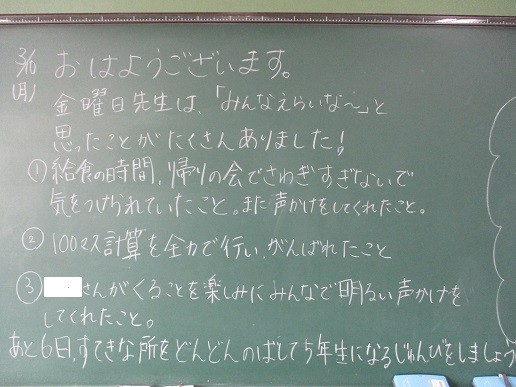 3/16 おはようございます。
(月) 金曜日先生は、「みんなえらいな〜」と
思ったことがたくさんありました！
① 給食の時間，帰りの会でさわぎすぎないで
気をつけられていたこと。また声かけをしてくれたこと。
② 100マス計算を全力で行い，がんばれたこと
③ さんがくることを楽しみにみんなで明るい声かけを
してくれたこと。
あと6日，すてきな所をどんどんのばして5年生になるじゅんびをしましょう